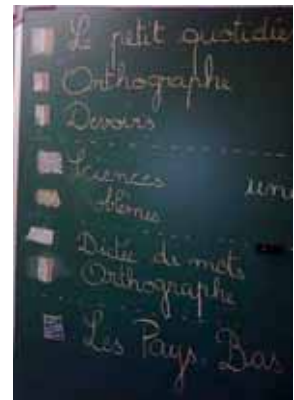 L petit quotidie
Orthographe
Devoirs
Sciences une
oblèmes
Dictée de mots
Orthographe
Les Pays. Bas